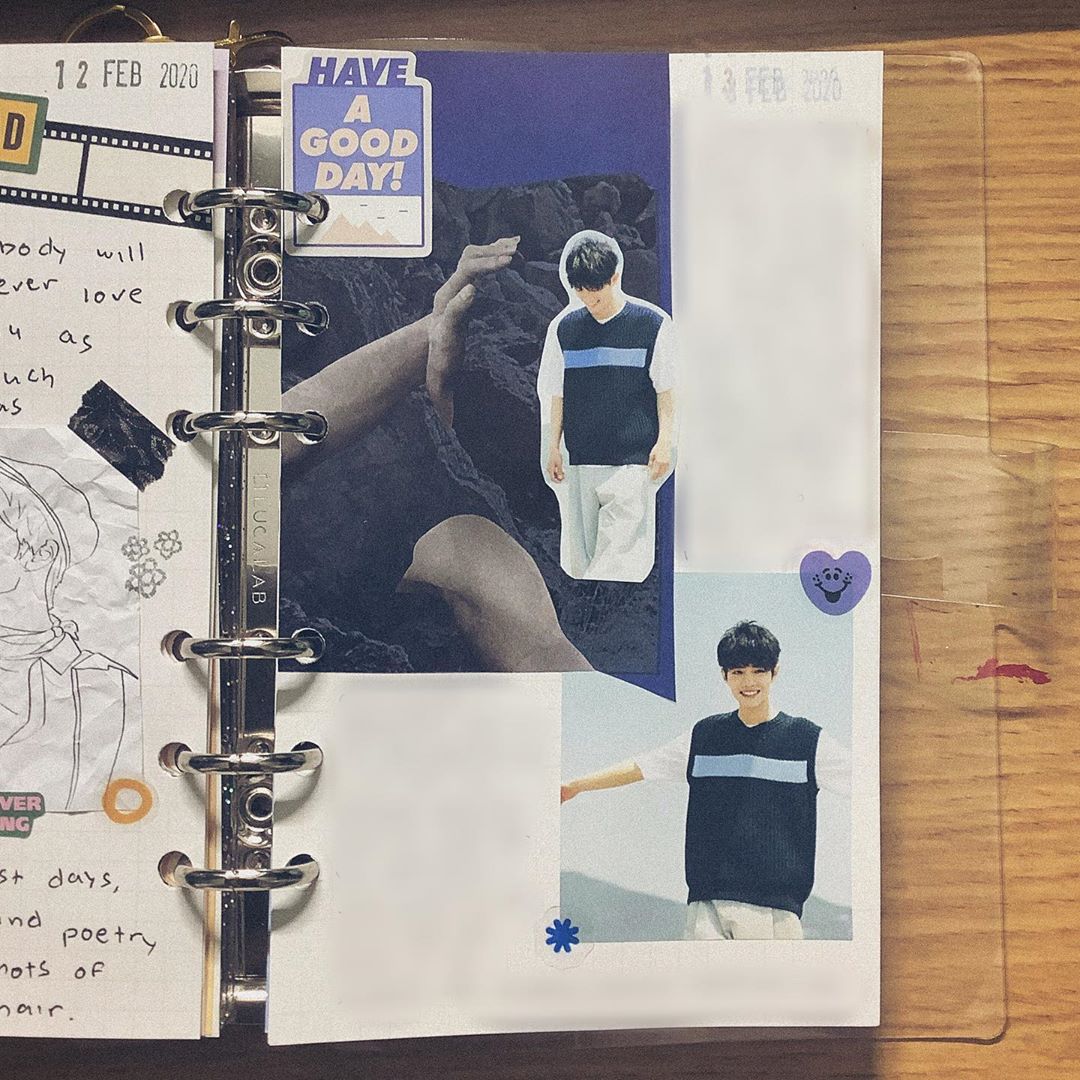 12 FEB 2020
D
body will
ever love
u as
uch
as
VER
NG
st days,
and poetry
nots of
hair.
LUCALAB
HAVE
A
GOOD
DAY!
13 FEB 2020